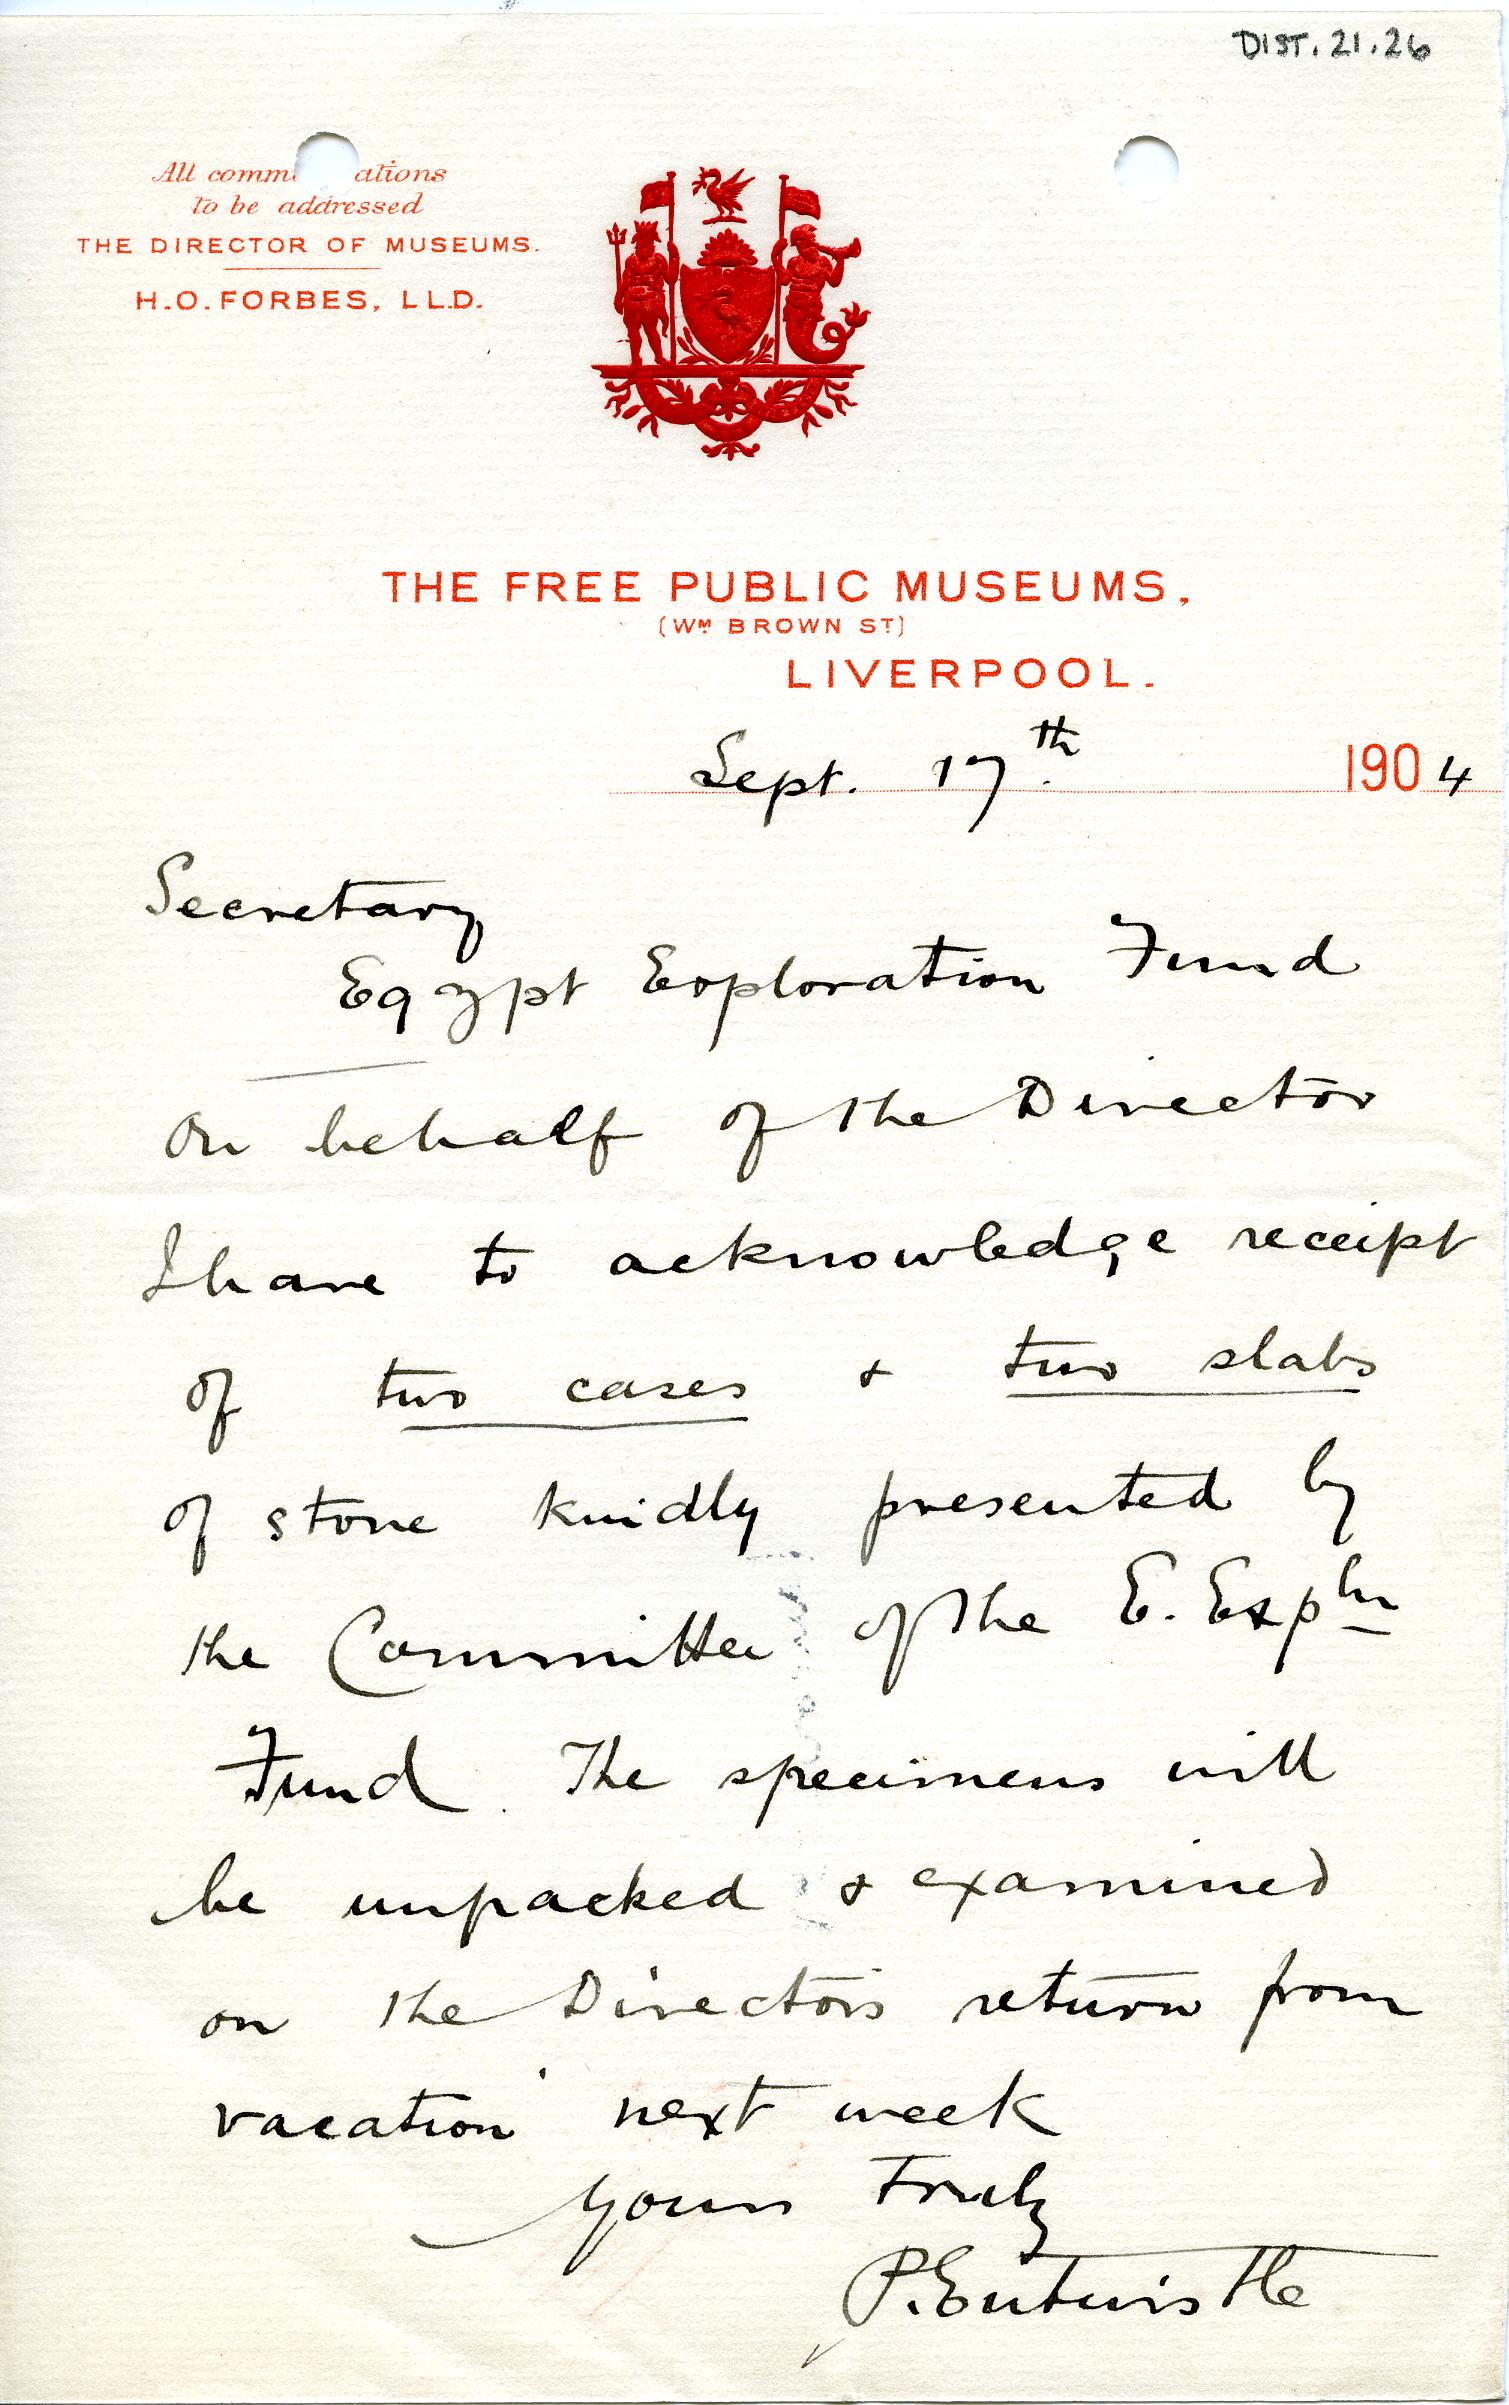 DIST.21.26
All comm ations
to be addressed
THE DIRECTOR OF MUSEUMS.
H.O. FORBES, LL.D.
THE FREE PUBLIC MUSEUMS,
(WM BROWN ST)
LIVERPOOL.
Sept. 17th 1904
Secretary
Egypt Exploration Fund
On behalf of the Director
I have to acknowledge receipt
of two cases & two slabs
of stone kindly presented by
the Committee of the E. Expln
Fund. The specimens will
be unpacked & examined
on the Directors return from
vacation next week
Yours Truly
P. Entwistle